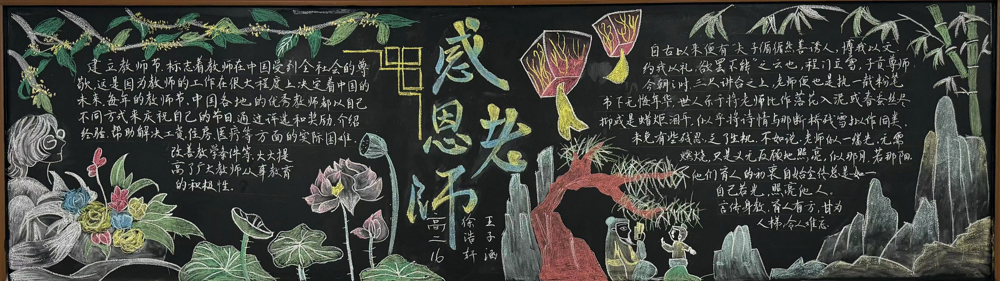 建立教师节,标志着教师在中国受到全社会的尊
敬,这是因为教师的工作在很大程度上决定着中国的
未来每年的教师节,中国各地的优秀教师都以自己
不同方式来庆祝自己的节日,通过评选和奖励,介绍
经验,帮助解决工资住房,医疗等方面的实际困难
改善教学条件等,大大提
高了广大教师从事教育
的积极性.
感恩老师
高二16
徐浩轩
王子涵
自古以来便有夫子循循然善诱人,博我以文,
约我以礼,欲罢不能之云也,程门立雪,子贡尊师
今朝时三尺讲台之上,老师便也是执一截粉笔
书下无惜年华,世人乐于将老师比作落花入泥,或春蚕丝尽
抑或是蜡烛泪干,似乎将诗情与那断桥残雪拟作而美,
未免有些残忍,乏了生机,不如说,老师似一缕光,无需
燃烧,只是义无反顾地照亮,似那月,若那阳
他们育人的初衷自始至终总是如一
自己若光,照亮他人,
言传身教,育人有方,甘为
人梯,令人难忘